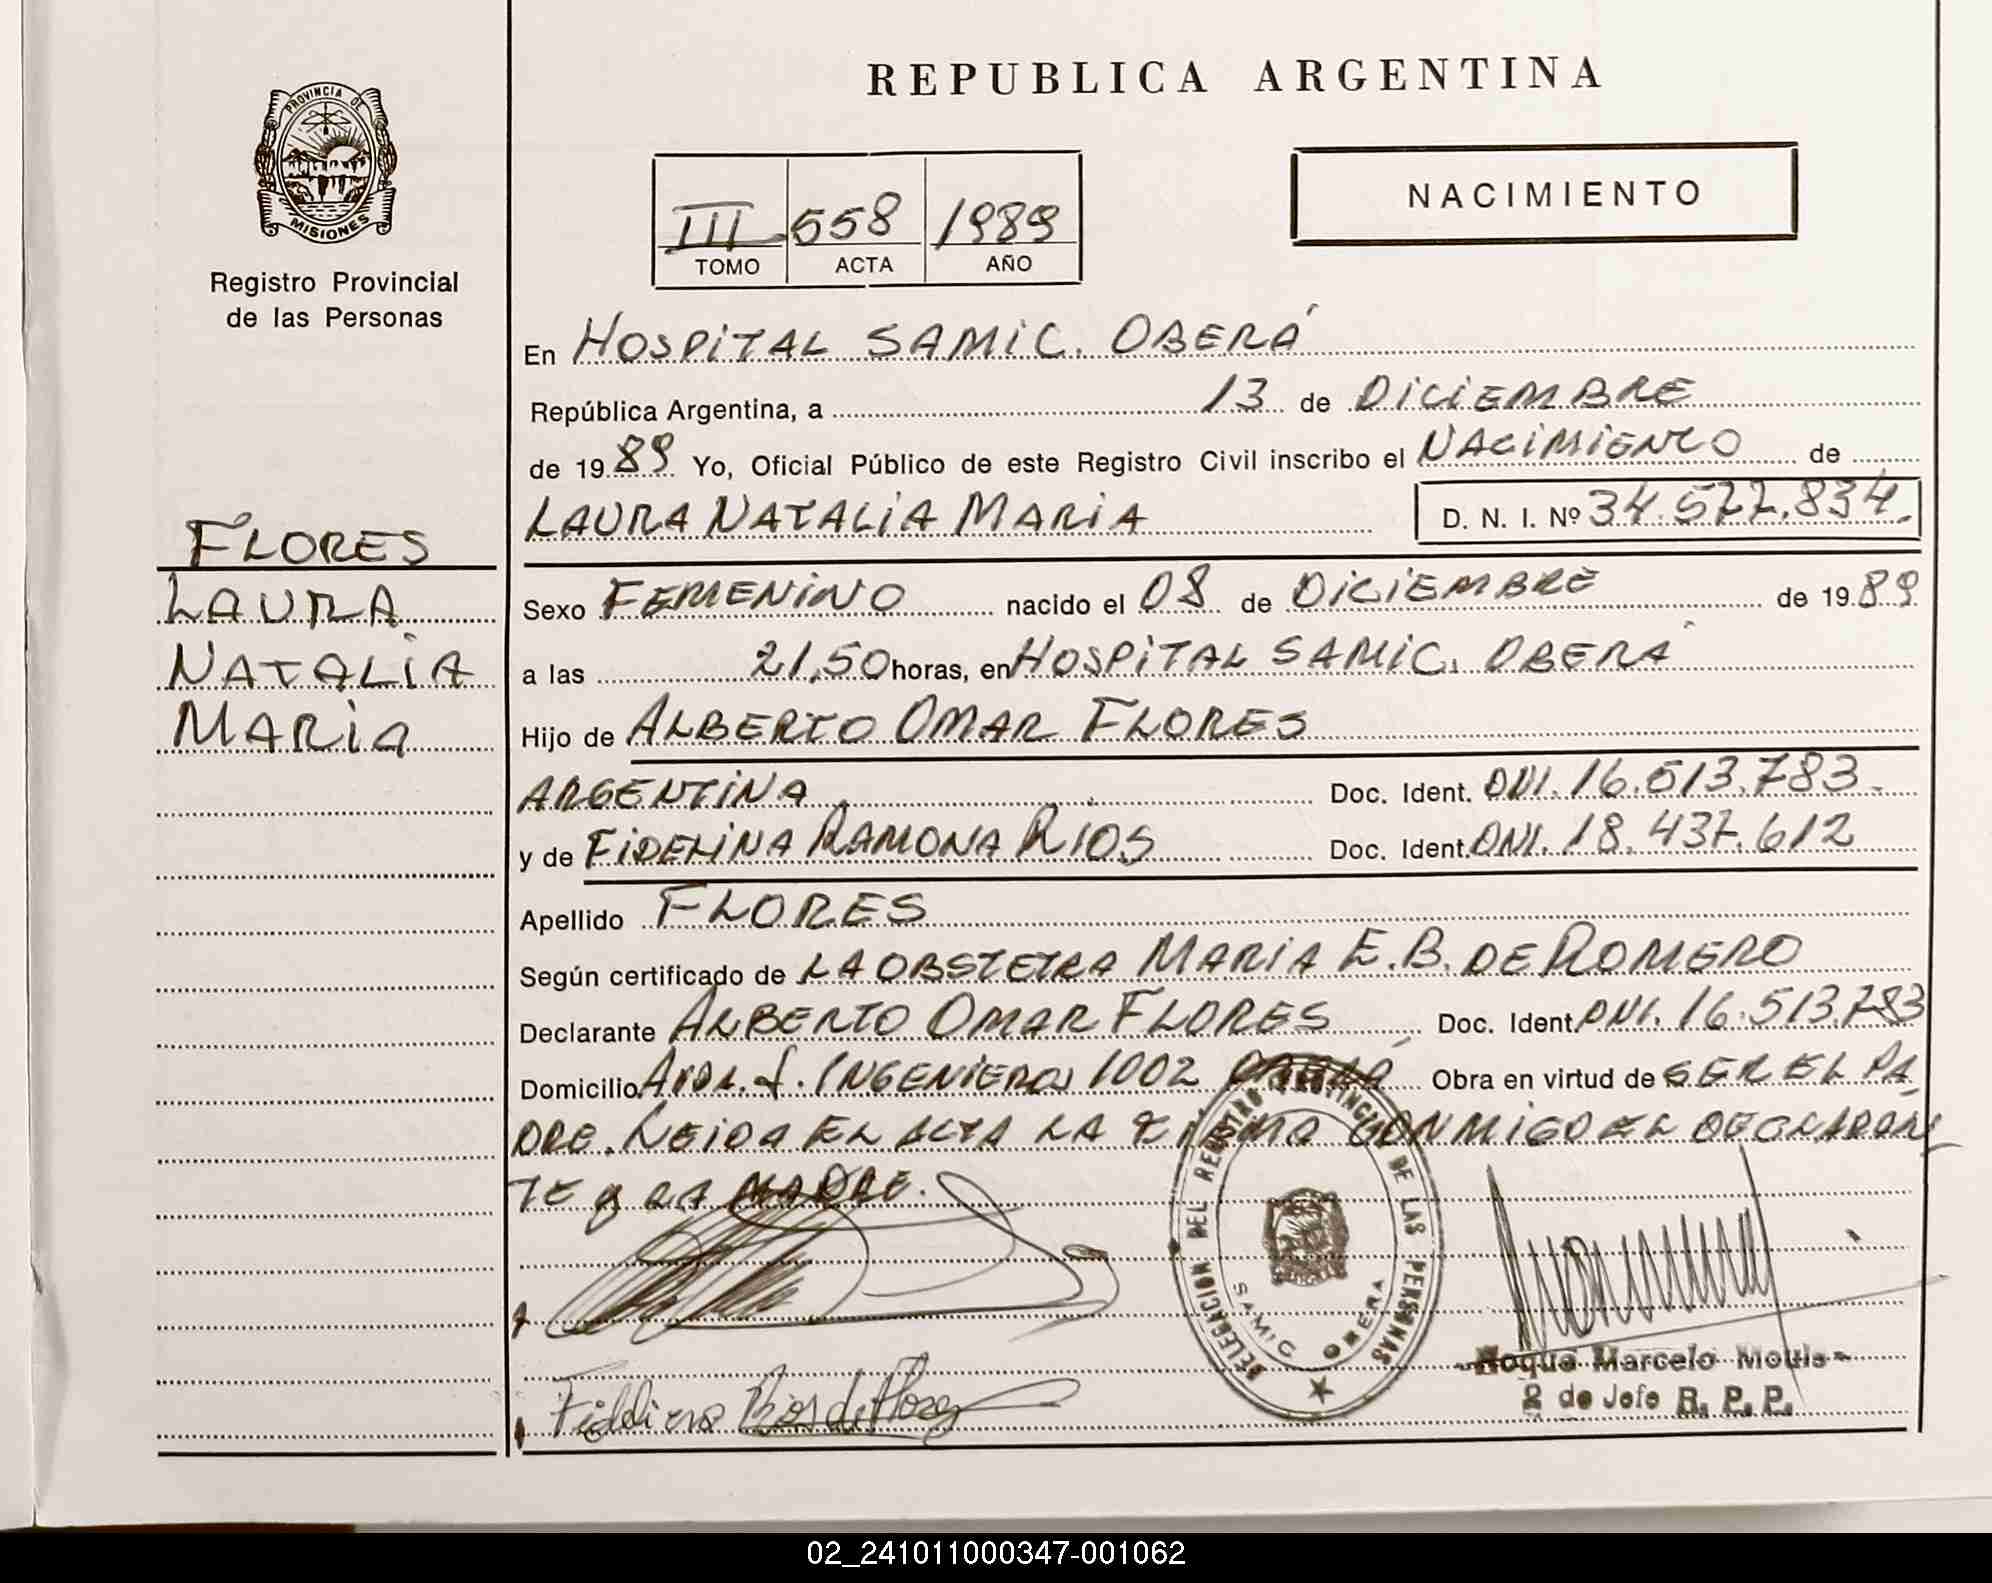 PROVINCIA DE
MISIONES
Registro Provincial
de las Personas
FLORES
LAURA
NATALIA
MARIA
REPUBLICA ARGENTINA
NACIMIENTO
III 558 1989
TOMO ACTA AÑO
En HOSPITAL SAMIC. OBERÁ
República Argentina, a 13 de DICIEMBRE
de 1989 Yo, Oficial Público de este Registro Civil inscribo el NACIMIENTO de
LAURA NATALIA MARIA D. N. I. Nº 34.577.834.
Sexo FEMENINO nacido el 08 de DICIEMBRE de 1989
a las 21,50 horas, en HOSPITAL SAMIC. OBERÁ
Hijo de ALBERTO OMAR FLORES
ARGENTINA Doc. Ident. DNI. 16.513.783.
y de FIDELINA RAMONA RIOS Doc. Ident. DNI. 18.437.612
Apellido FLORES
Según certificado de LA OBSTETRA MARIA E.B. DE ROMERO
Declarante ALBERTO OMAR FLORES Doc. Ident. DNI. 16.513.783
Domicilio AVDA. J. INGENIEROS 1002 OBERÁ Obra en virtud de SER EL PA
DRE. LEIDA EL ACTA LA FIRMA CONMIGO EL DECLARAN
TE Y LA MADRE.
DELEGACION DEL REGISTRO PROVINCIAL DE LAS PERSONAS
SAMIC OBERA
Fidelina Rios de Flores
Roque Marcelo
2 de Jefe R. P. P.
02_241011000347-001062